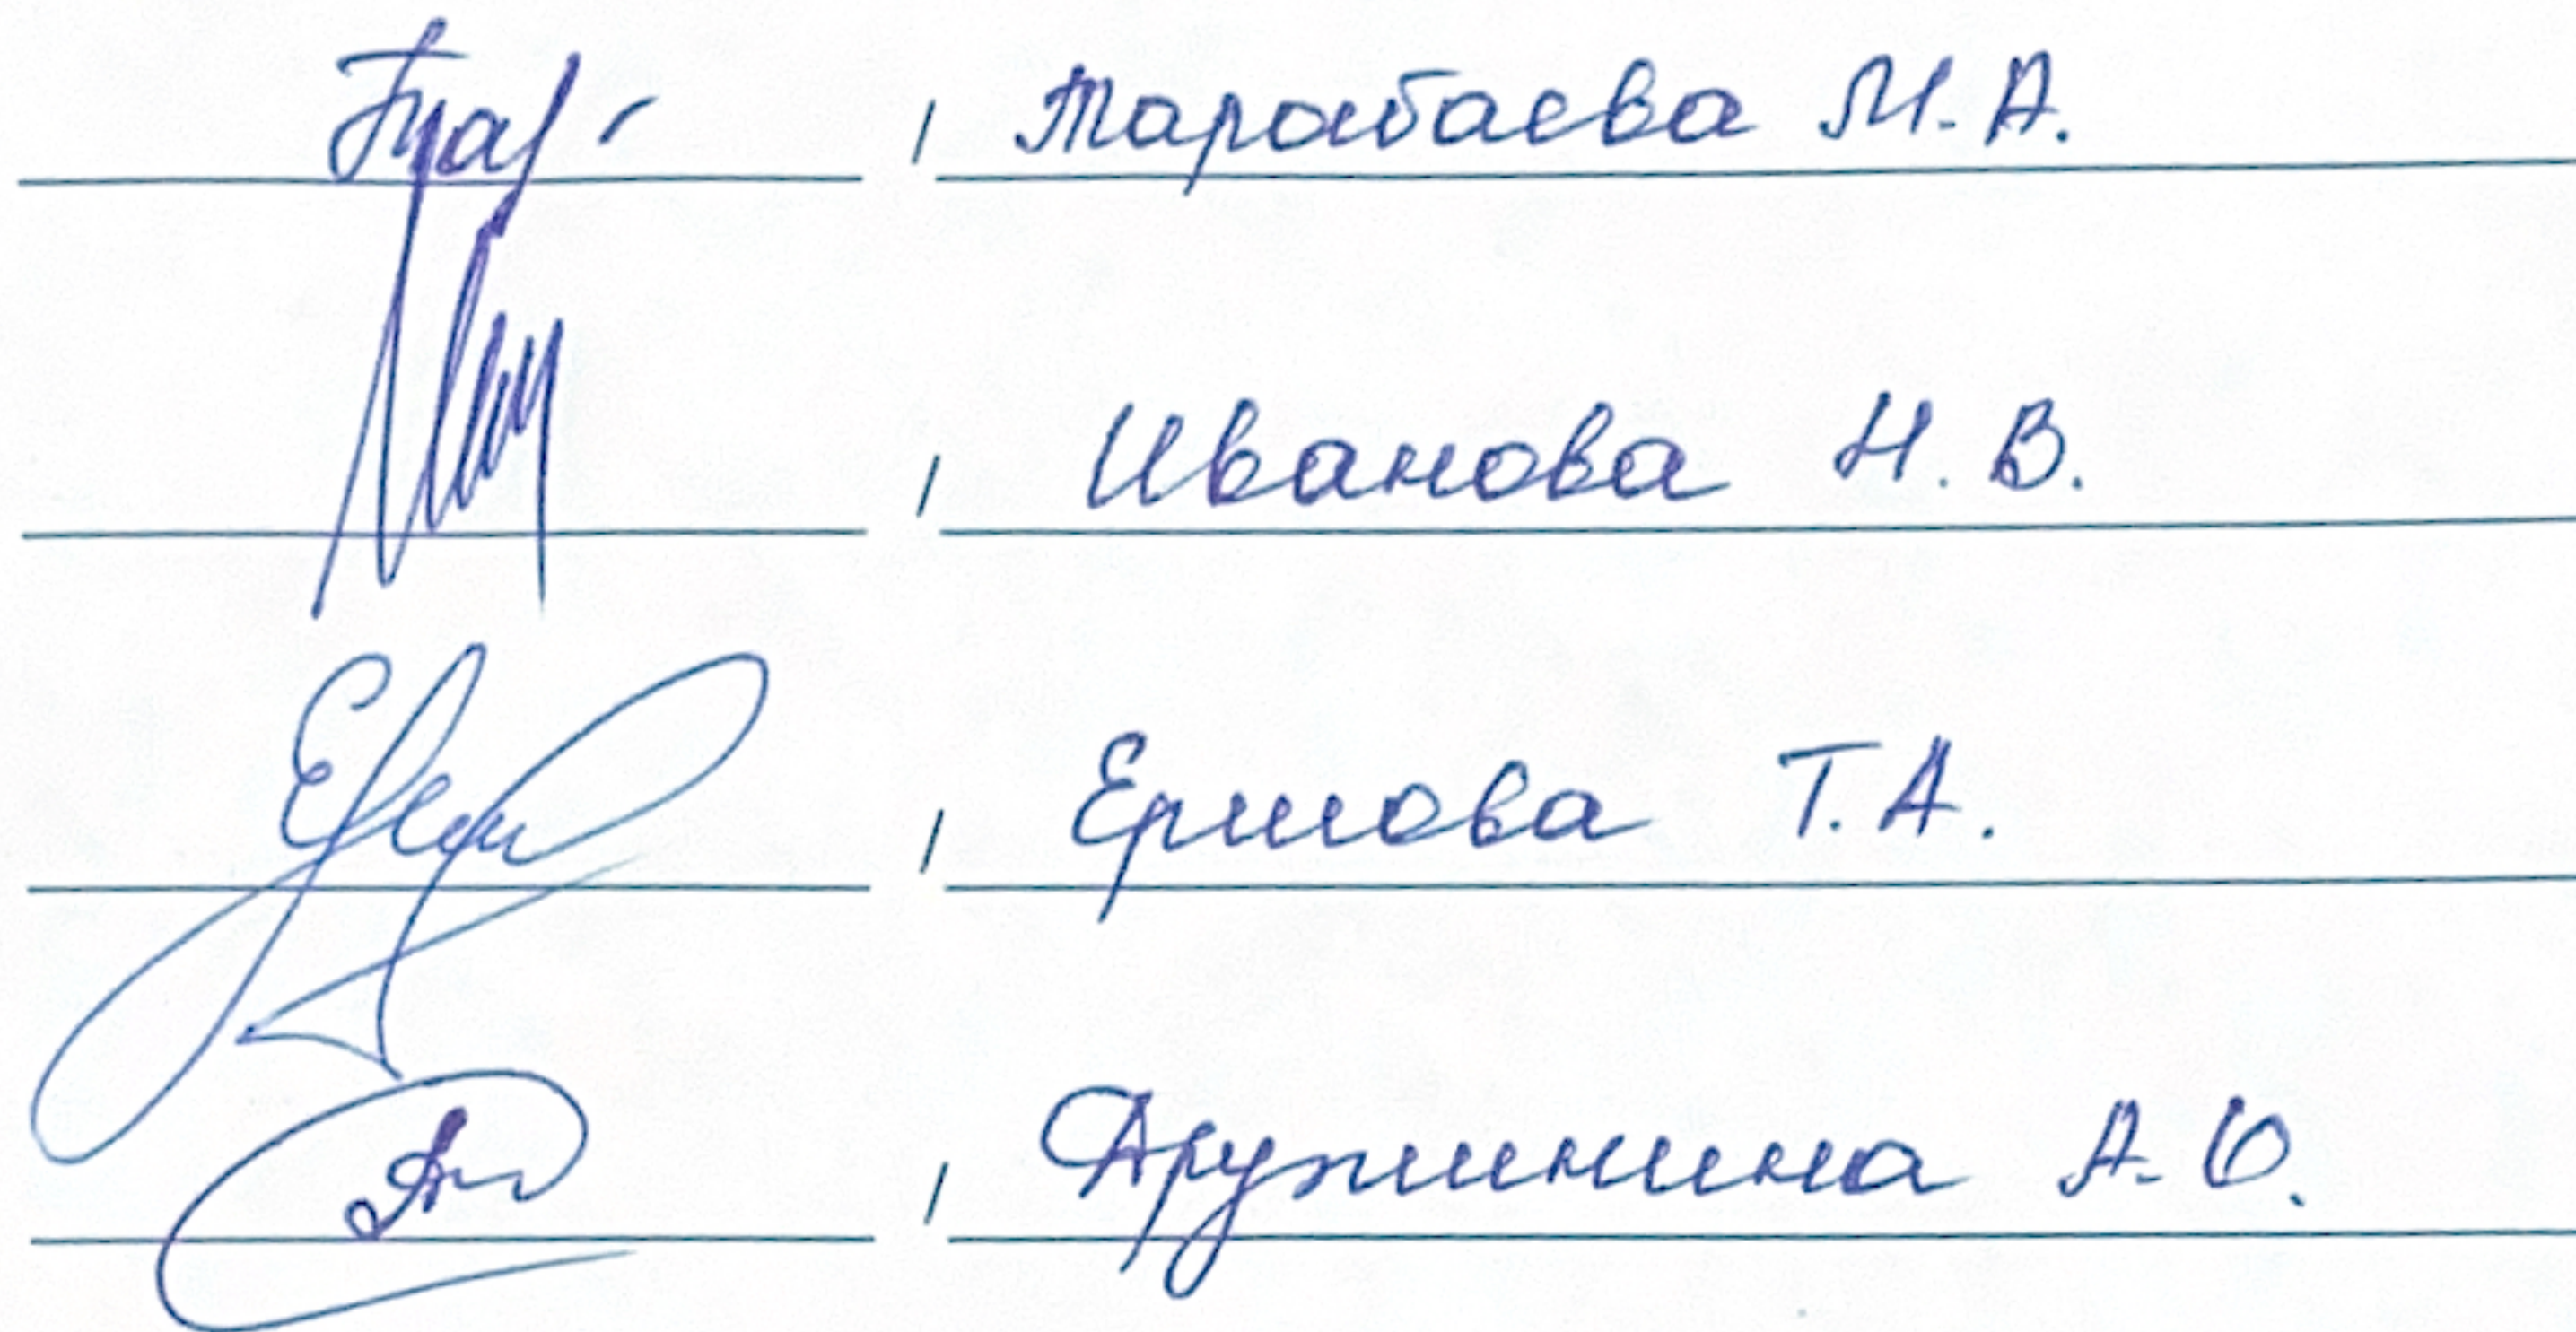 , Тарабаева М. А.
, Иванова Н. В.
, Ершова Т. А.
, Дружинина А. О.